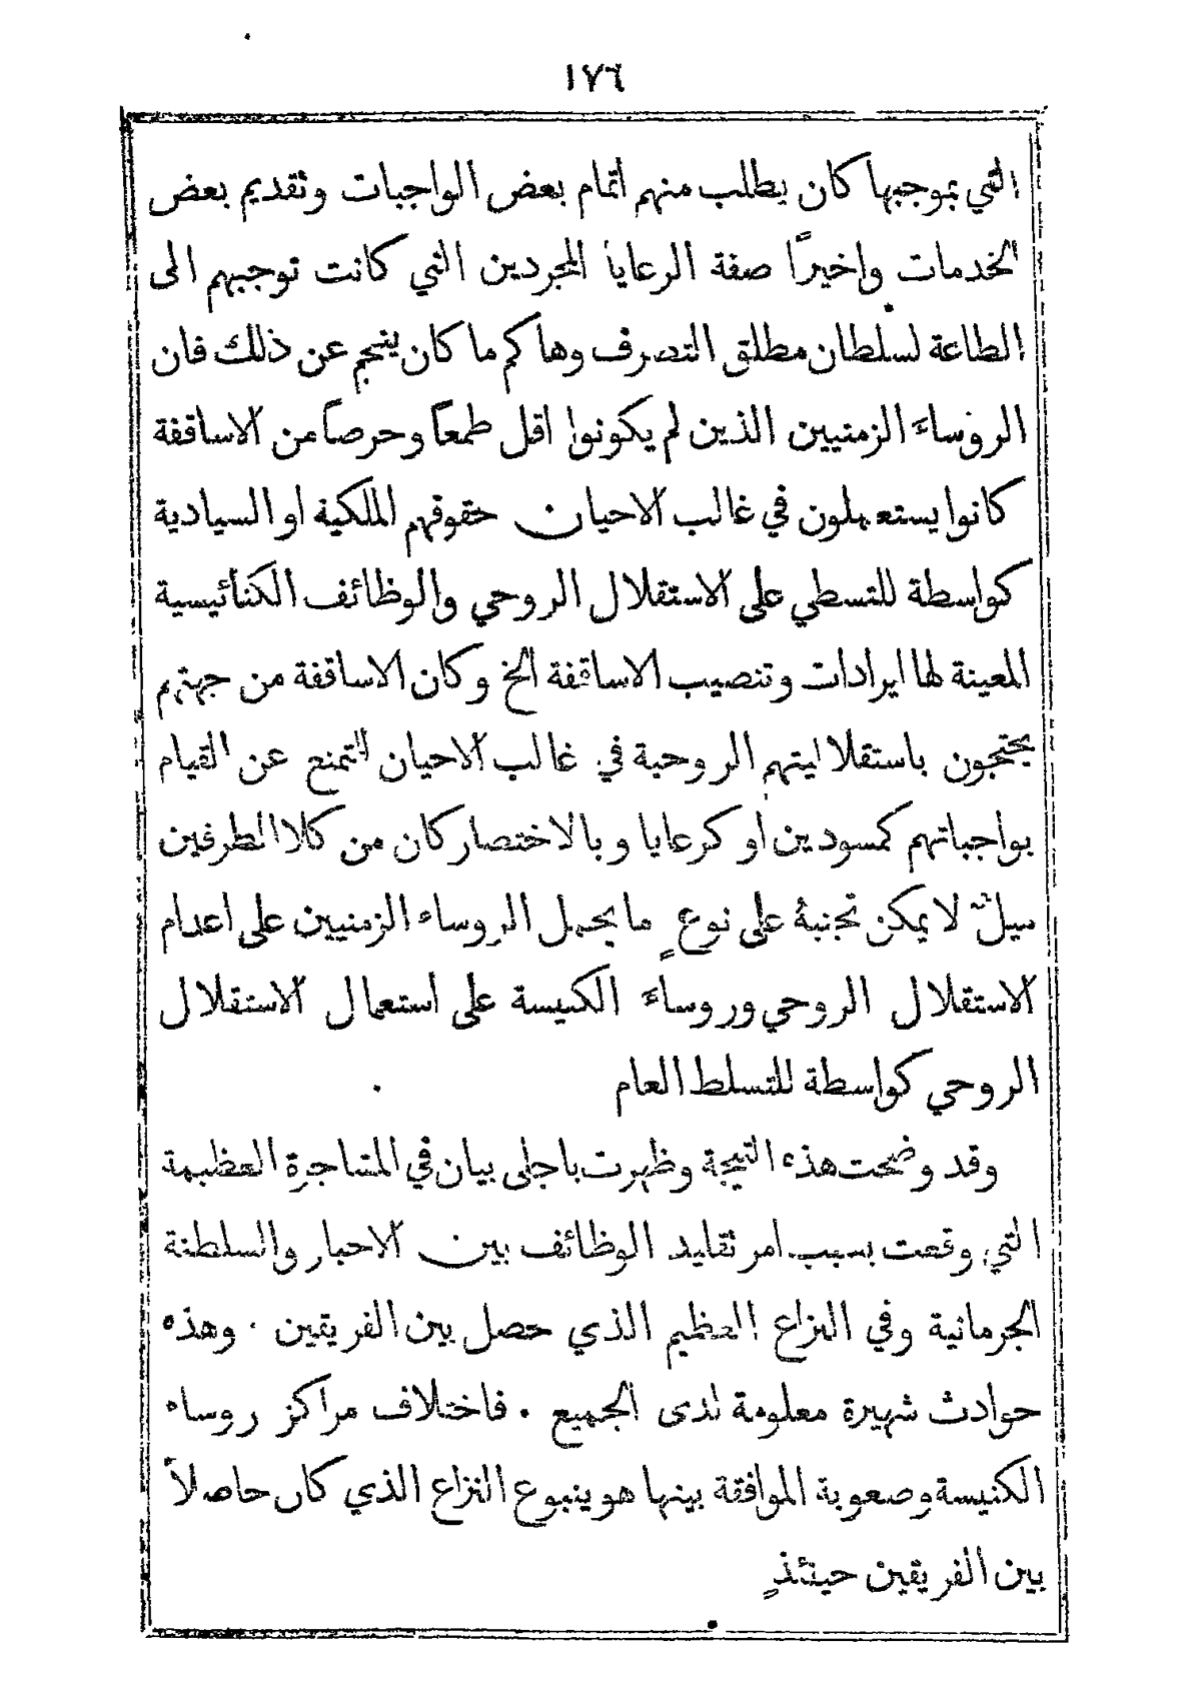 ١٧٦
التي بموجبها كان يطلب منهم اتمام بعض الواجبات وتقديم بعض
الخدمات واخيرًا صفة الرعايا المجردين التي كانت توجبهم الى
الطاعة لسلطان مطلق التصرف وهاكم ما كان ينجم عن ذلك فان
الروساءَ الزمنيين الذين لم يكونوا اقل طمعاً وحرصاً من الاساقفة
كانوا يستعملون في غالب الاحيان حقوقهم الملكية او السيادية
كواسطة للتسطي على الاستقلال الروحي والوظائف الكنائيسية
المعينة لها ايرادات وتنصيب الاساقفة الخ وكان الاساقفة من جهتهم
يحتجون باستقلاليتهم الروحية في غالب الاحيان للتمنع عن القيام
بواجباتهم كمسودين او كرعايا وبالاختصار كان من كلا الطرفين
ميلٌ لا يمكن تجنبهُ على نوعٍ ما يحمل الروساء الزمنيين على اعدام
الاستقلال الروحي وروساءَ الكنيسة على استعمال الاستقلال
الروحي كواسطة للتسلط العام
وقد وضحت هذه النتيجة وظهرت باجلى بيان في المشاجرة العظيمة
التي وقعت بسبب امر تقليد الوظائف بين الاحبار والسلطنة
الجرمانية وفي النزاع العظيم الذي حصل بين الفريقين . وهذه
حوادث شهيرة معلومة لدى الجميع . فاختلاف مراكز روساء
الكنيسة وصعوبة الموافقة بينها هو ينبوع النزاع الذي كان حاصلاً
بين الفريقين حينئذٍ